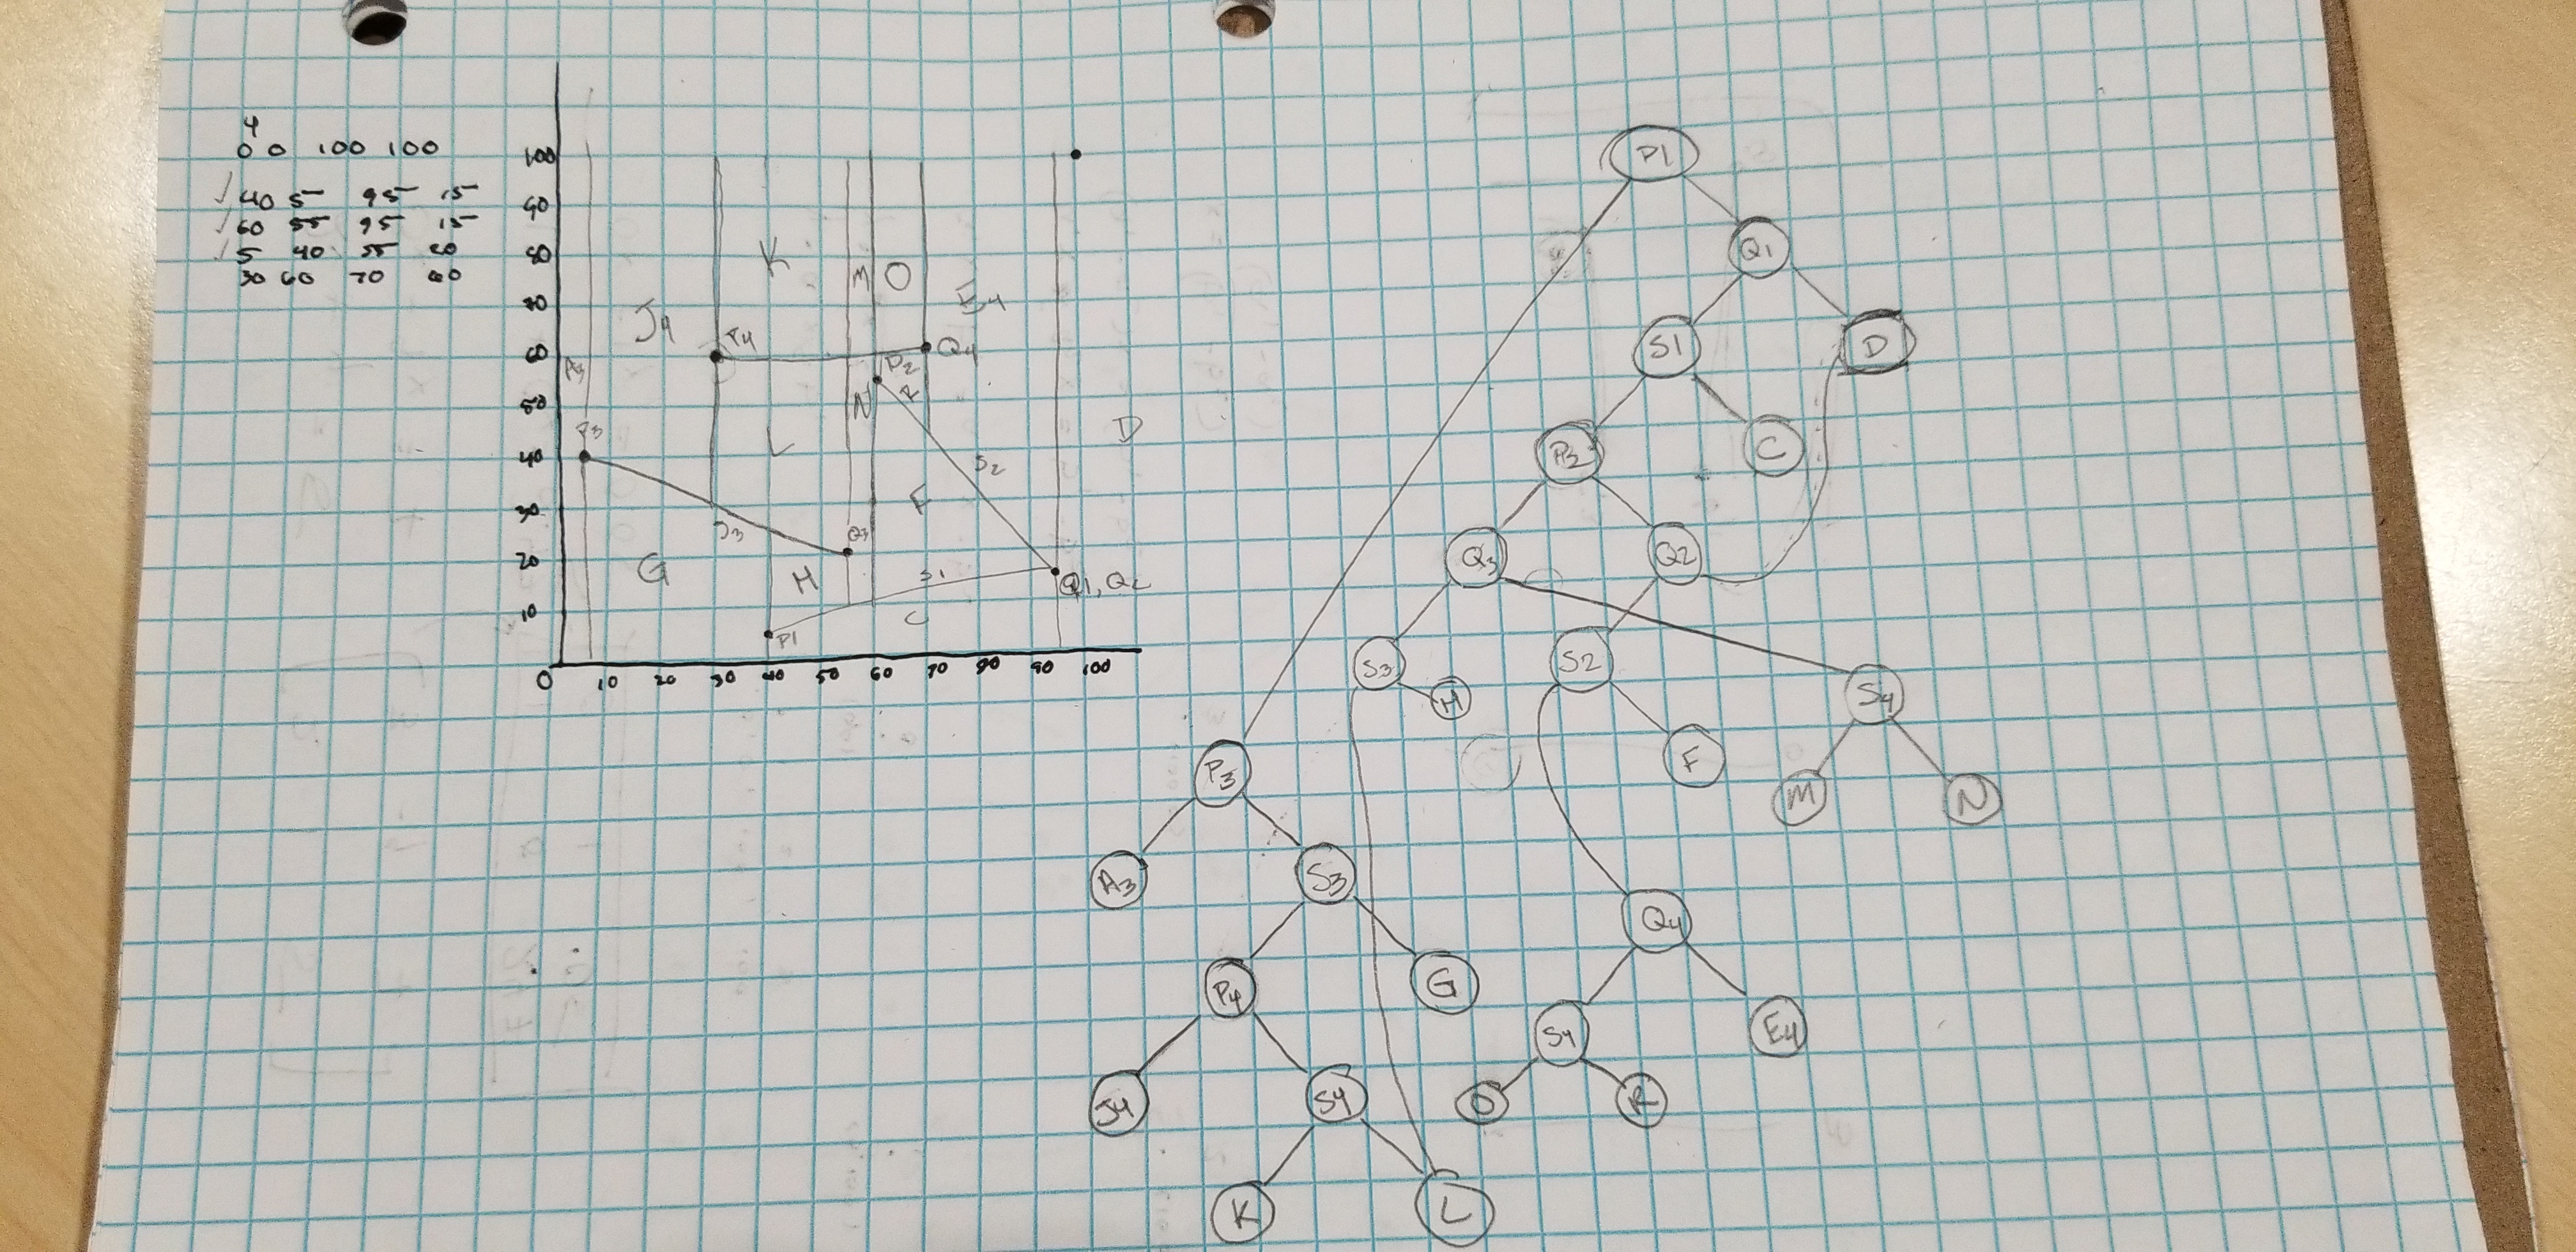 4
0 0 100 100
40 5 95 15
60 55 95 15
5 40 55 20
30 60 70 60
100
90
80
70
60
50
40
30
20
10
0 10 20 30 40 50 60 70 80 90 100
K
M O
E4
J4
P4
Q4
A3
P2
N R
P3
L
D
S2
F
S3
Q3
G
H
S1
Q1, Q2
C
P1
P1
Q1
S1 D
P2 C
Q3 Q2
S3 H S2 S4
P3 F M N
A3 S3 Q4
P4 G
S4 E4
J4 S4 O R
K L